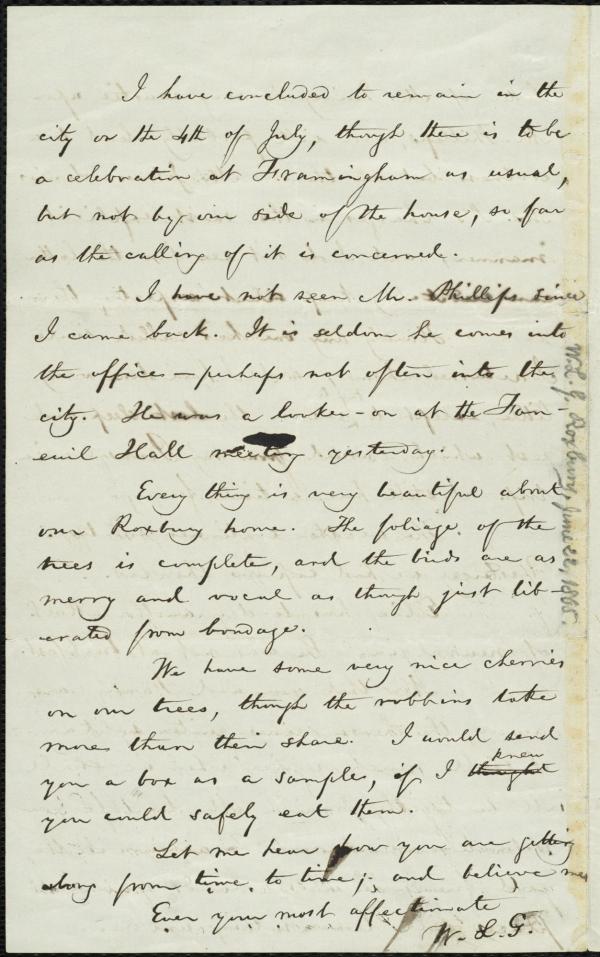 I have concluded to remain in the
city on the 4th of July, though there is to be
a celebration at Framingham as usual,
but not by our side of the house, so far
as the calling of it is concerned.
I have not seen Mr. Phillips since
I came back. It is seldom he comes into
the office — perhaps not often into the
city. He was a looker-on at the Fan-
euil Hall meeting yesterday.
Every thing is very beautiful about
our Roxbury home. The foliage of the
trees is complete, and the birds are as
merry and vocal as though just lib-
erated from bondage.
We have some very nice cherries
on our trees, though the robbins take
more than their share. I would send
you a box as a sample, if I thought knew
you could safely eat them.
Let me hear how you are getting
along from time to time; and believe me
Ever your most affectionate
W. L. G.
W. L. G. Roxbury, June 22, 1865.